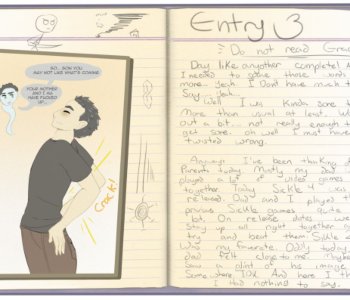 SO... SON YOU
MAY NOT LIKE WHAT'S COMING
YOUR MOTHER AND I MA
HAVE FUCKED UP...
Crack!
Entry 3
Do not read
Day like anyother completed
I needed to some those words
more. Yeah I Don't have much to
Say
Well I was Kinda sore
More than usual at least
out a bit not really enough
get sore. oh well I must have
twisted wrong.
Anyways I've been thinking
Parents today. Mostly my Dad
played video games
together. Today Sickle 4 was
released. Dad and I played
previous Sickle games quite
bit. On release dates we
Stay up all night together
try and beat them. Sickle
Was my favorite. Oddly today
dad felt close to me. maybe
saw a glint his image
Somewhere, IDK. And here I
I had nothing to say.